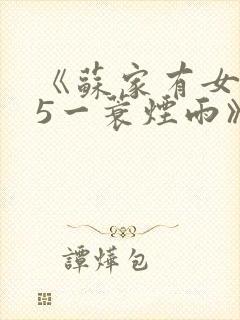 《蘇家有女
5一蓑煙雨》
譚燁包